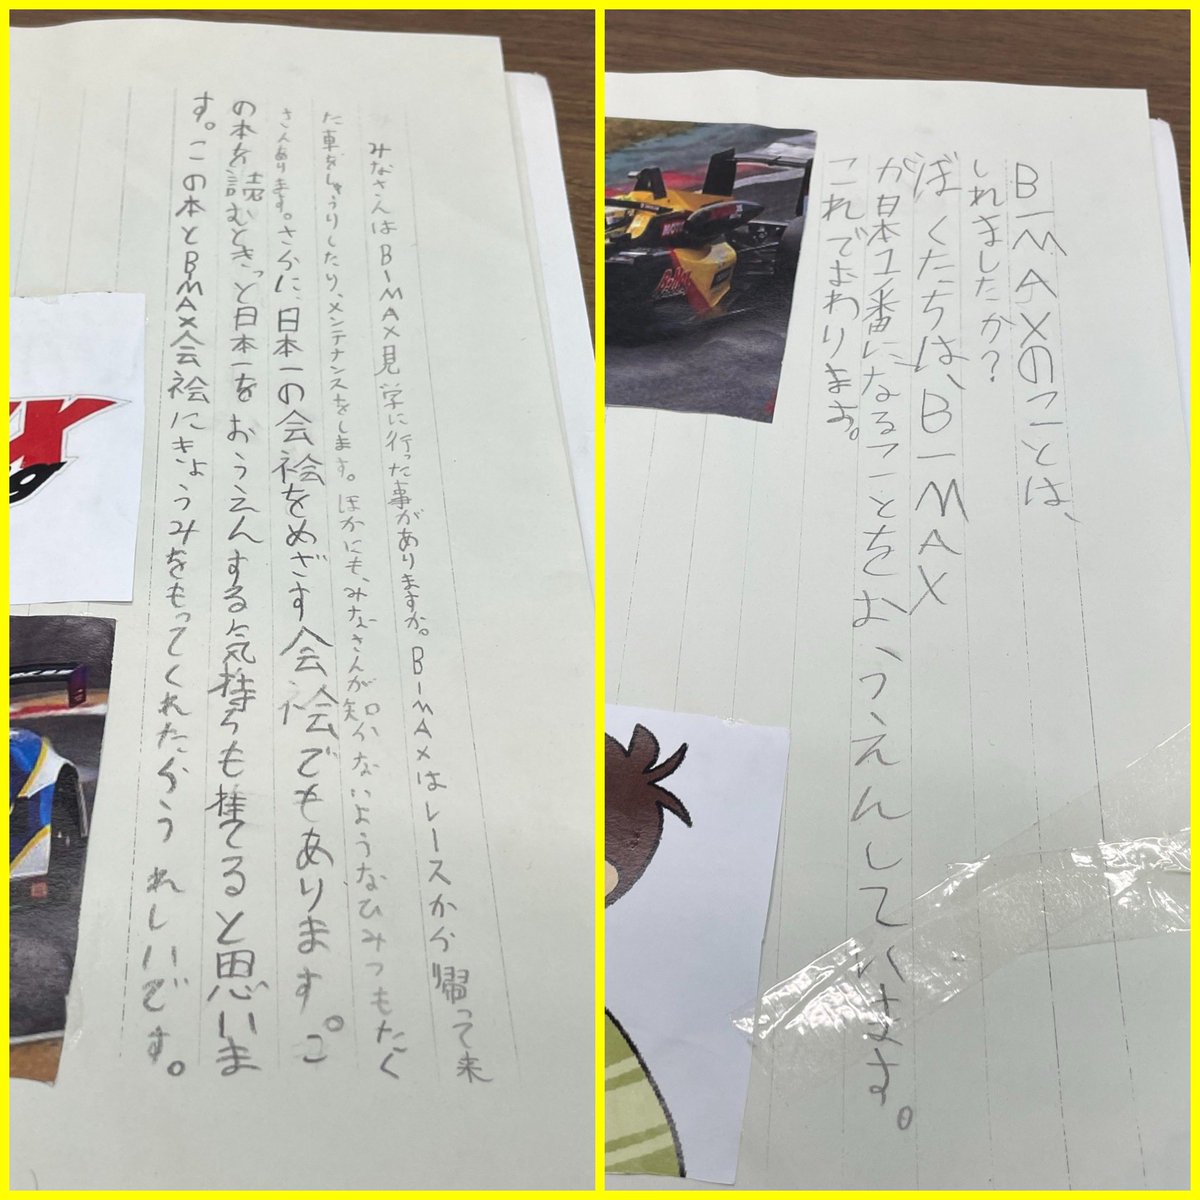 みなさんはB-MAX見学に行った事がありますか。B-MAXはレースから帰って来
た車をしゅうりしたり、メンテナンスをします。ほかにも、みなさんが知らないようなひみつもたく
さんあります。さらに、日本一の会社をめざす会社でもあります。こ
の本を読むときっと日本一をおうえんする気持ちも持てると思いま
す。この本とB-MAX会社にきょうみをもってくれたらうれしいです。
B-MAXのことは、
しれましたか?
ぼくたちは、B-MAX
が日本1番になることをおうえんしています。
これでおわります。